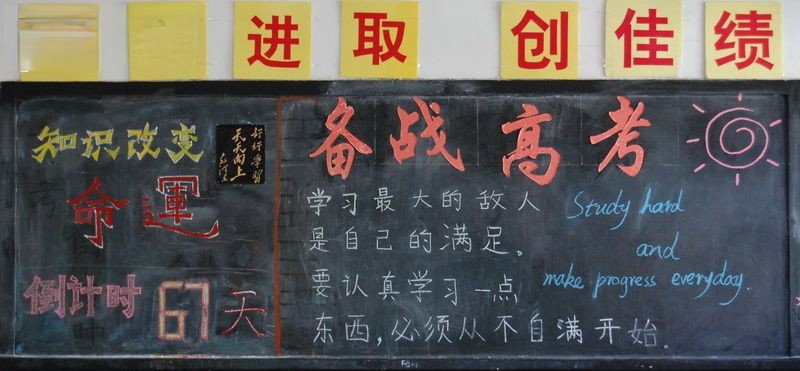 进取 创佳绩
知识改变
命運
倒计时 67天
好好学習
天天向上
毛泽东
备战高考
学习最大的敌人
是自己的满足。
要认真学习一点
东西,必须从不自满开始。
Study hard
and
make progress everyday.